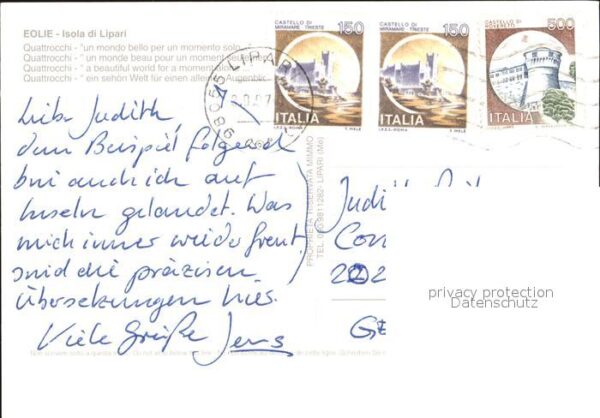 EOLIE - Isola di Lipari
Quattrocchi - "un mondo bello per un momento solo
Quattrocchi - "un monde beau pour un moment seulement
Quattrocchi - " a beautiful world for a moment
Quattrocchi - " ein sehön Welt für einen alleinen Augenblic
CASTELLO DI
MIRAMARE - TRIESTE
150
ITALIA
I.P.Z.S. - ROMA
E. VIELE
CASTELLO DI
MIRAMARE - TRIESTE
150
ITALIA
I.P.Z.S. - ROMA
E. VIELE
CASTELLO DI
ROVERETO
500
ITALIA
98055 LIPARI
Liebe Judith,
dem Beispiel folgend
bin auch ich auf
Inseln gelandet. Was
mich immer wieder freut
sind die präzisen
Übersetzungen hies.
Viele Grüße Jens
PROPRIETÀ RISERVATA MIMMO
LIPARI (Me)
Judith
Con
GE
privacy protection
Datenschutz